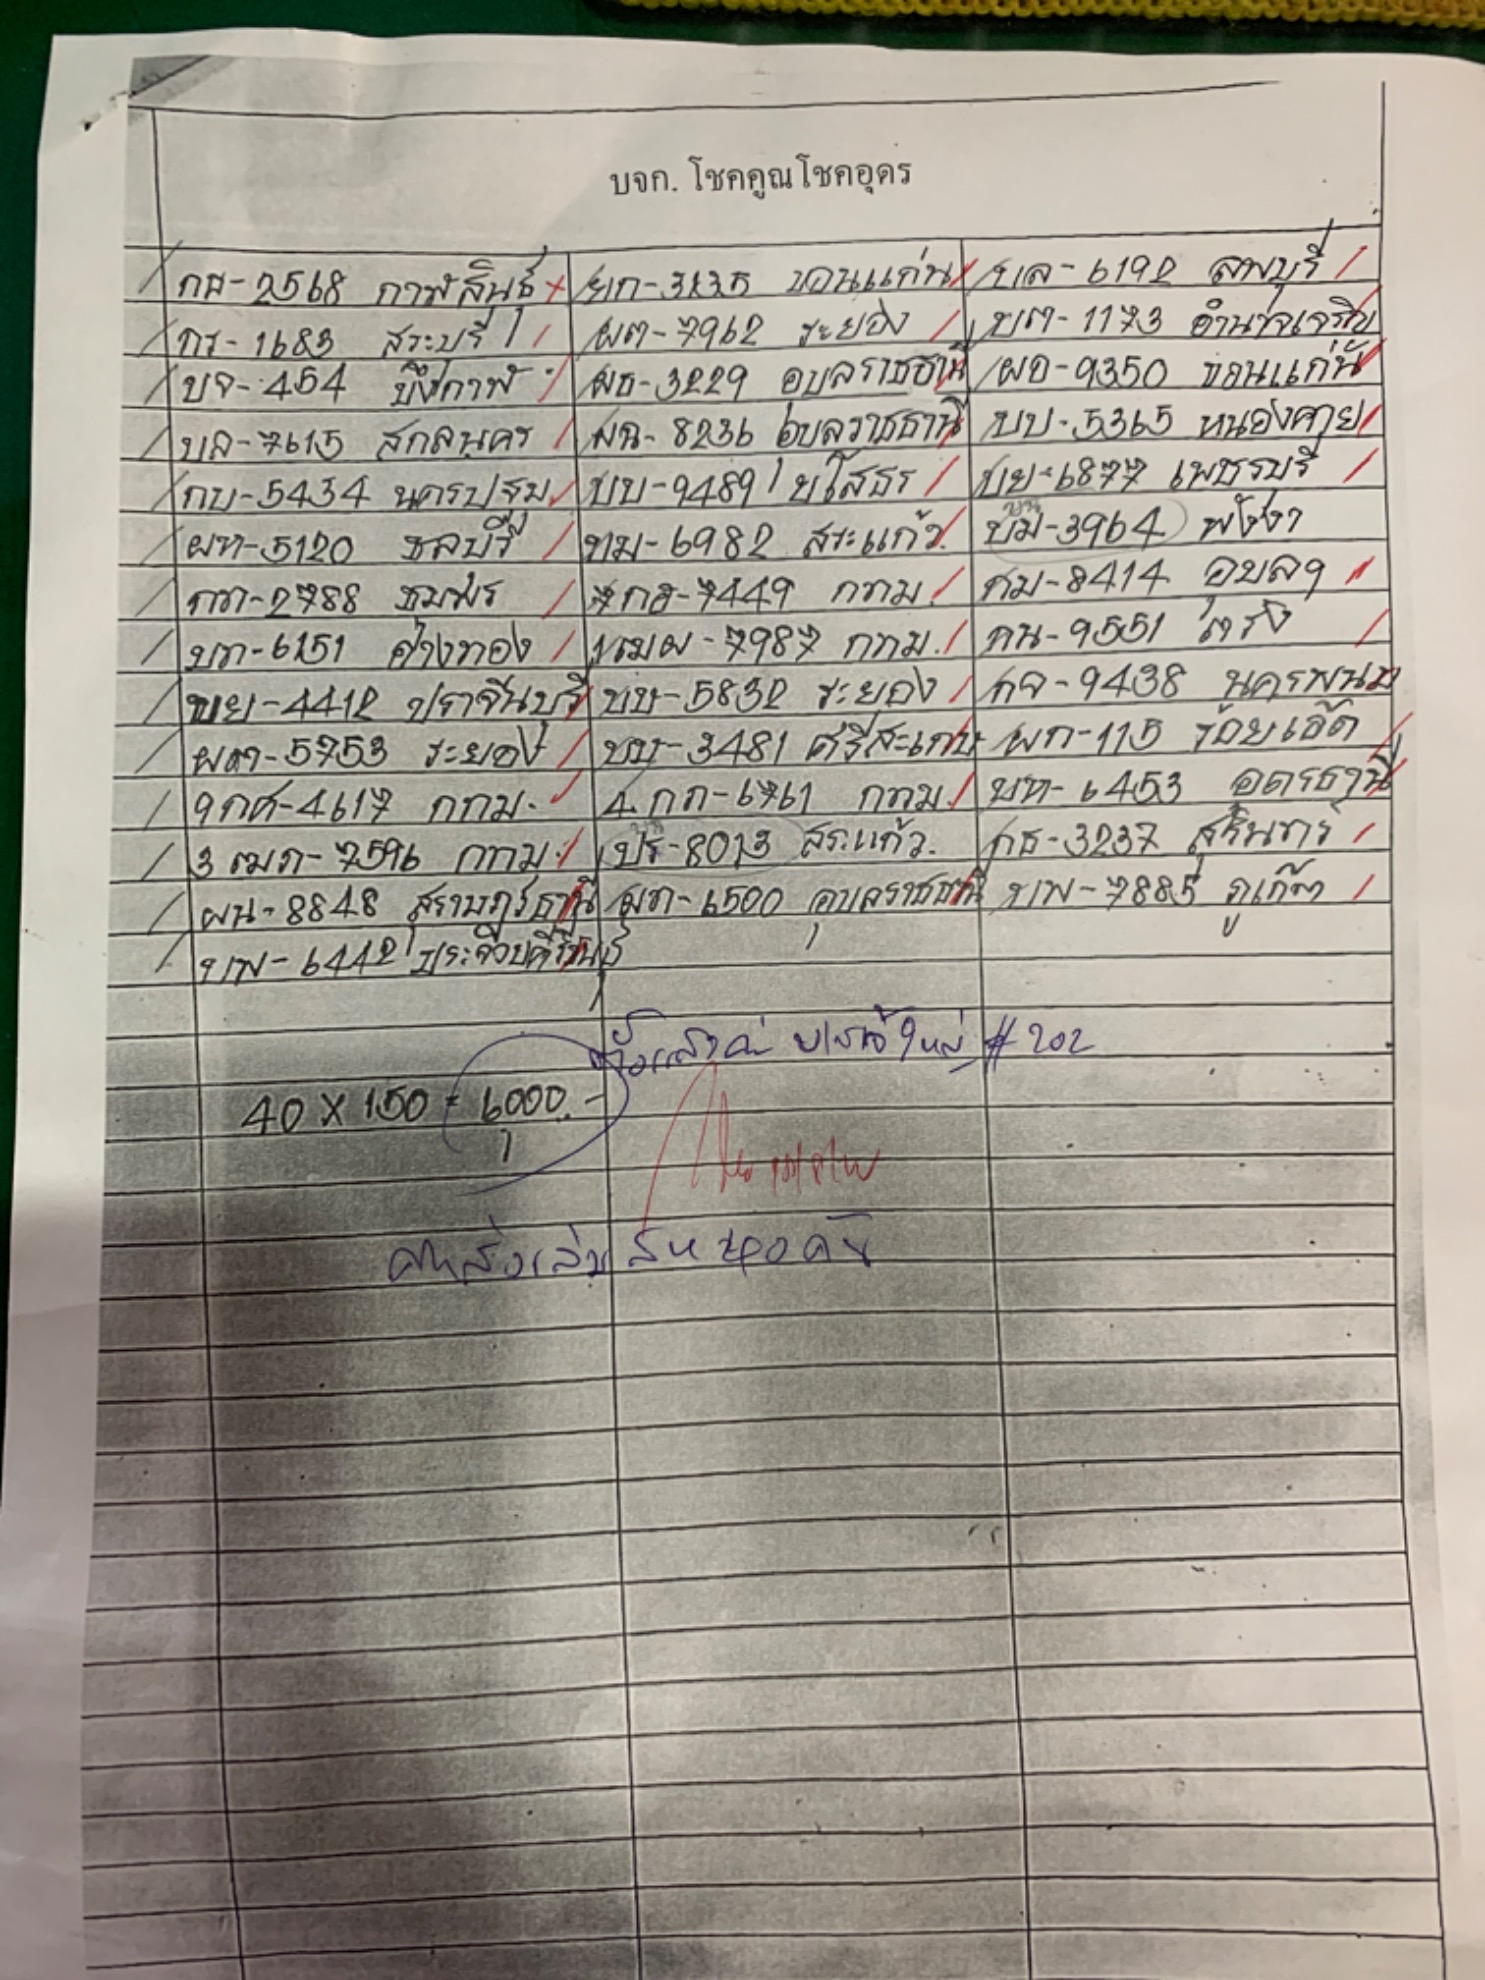 บจก. โชคคูณโชคอุดร
กส-2568 กาฬสินธุ์ ยก-3235 ขอนแก่น บล-6192 ลพบุรี
กร-1683 สระบุรี ผต-7962 ระยอง บต-1173 อำนาจเจริญ
บจ-454 บึงกาฬ ผธ-3229 อุบลราชธานี ผอ-9350 ขอนแก่น
บล-7615 สกลนคร ผฉ-8236 อุบลราชธานี บบ-5365 หนองคาย
กบ-5434 นครปฐม บบ-9489 ยโสธร บย-6877 เพชรบุรี
ผท-5120 ชลบุรี กม-6982 สระแก้ว บม-3964 พังงา
กท-2788 ชุมพร 7กฮ-7449 กทม. กม-8414 อุบลฯ
บก-6151 อ่างทอง 1ฒผ-7987 กทม. กน-9551 ตรัง
ขย-4412 ปราจีนบุรี ขบ-5832 ระยอง กจ-9438 นครพนม
ผต-5753 ระยอง ขบ-3481 ศรีสะเกษ ผก-115 ร้อยเอ็ด
9กศ-4617 กทม. 4กภ-6761 กทม. บท-6453 อุดรธานี
3ฒภ-7596 กทม. บร-8013 สระแก้ว. กธ-3237 สุรินทร์
ผน-8848 สุราษฎร์ธานี มก-6500 อุบลราชธานี บพ-7885 ภูเก็ต
บพ-6442 ประจวบคีรีขันธ์
#202
40 X 150 = 6000.-